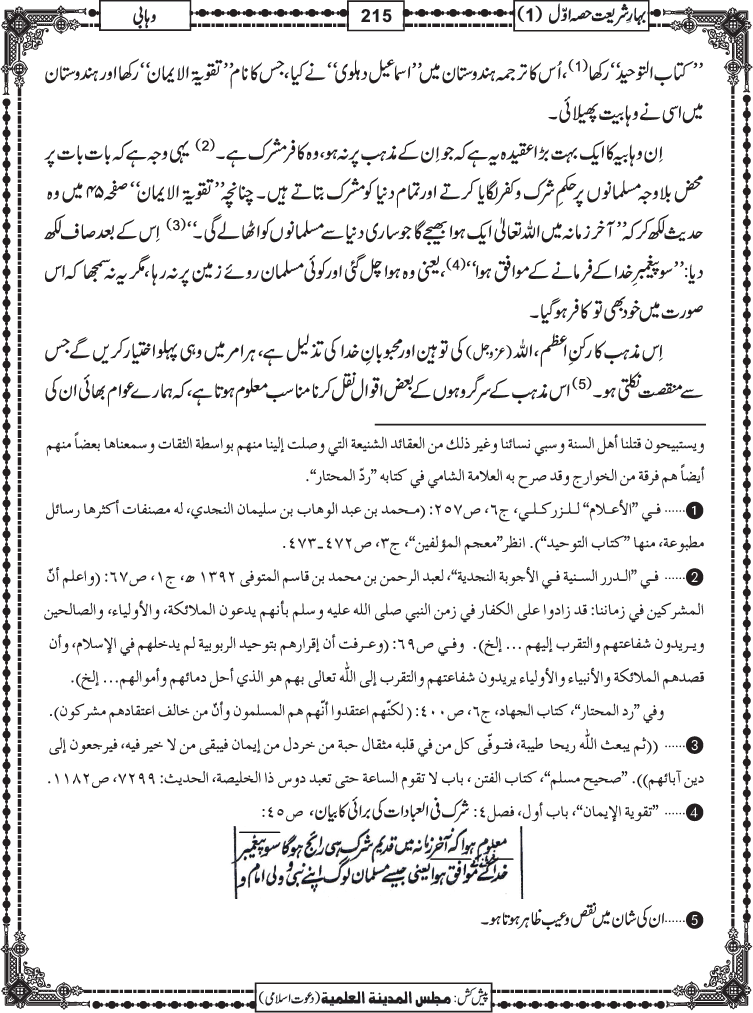 بہارِ شریعت حصہ اوّل (1)
215
وہابی
’’کتاب التوحید‘‘ رکھا(1)، اُس کا ترجمہ ہندوستان میں ’’اسماعیل دہلوی‘‘ نے کیا، جس کا نام ’’تقویۃ الایمان‘‘ رکھا اور ہندوستان
میں اسی نے وہابیت پھیلائی۔
اِن وہابیہ کا ایک بہت بڑا عقیدہ یہ ہے کہ جو اِن کے مذہب پر نہ ہو، وہ کافر مشرک ہے۔(2) یہی وجہ ہے کہ بات بات پر
محض بلاوجہ مسلمانوں پر حکمِ شرک و کفر لگایا کرتے اور تمام دنیا کو مشرک بتاتے ہیں۔ چنانچہ ’’تقویۃ الایمان‘‘ صفحہ ۴۵ میں وہ
حدیث لکھ کر کہ ’’آخر زمانہ میں اللہ تعالیٰ ایک ہوا بھیجے گا جو ساری دنیا سے مسلمانوں کو اٹھا لے گی۔‘‘(3) اِس کے بعد صاف لکھ
دیا: ’’سو پیغمبرِ خدا کے فرمانے کے موافق ہوا‘‘(4)، یعنی وہ ہوا چل گئی اور کوئی مسلمان روئے زمین پر نہ رہا، مگر یہ نہ سمجھا کہ اس
صورت میں خود بھی تو کافر ہو گیا۔
اِس مذہب کا رکنِ اعظم، اللہ (عزوجل) کی توہین اور محبوبانِ خدا کی تذلیل ہے، ہر امر میں وہی پہلو اختیار کریں گے جس
سے منقصت نکلتی ہو۔(5) اس مذہب کے سرگروہوں کے بعض اقوال نقل کرنا مناسب معلوم ہوتا ہے، کہ ہمارے عوام بھائی ان کی
ويستبيحون قتلنا أهل السنة وسبي نسائنا وغير ذلك من العقائد الشنيعة التي وصلت إلينا منهم بواسطة الثقات وسمعناها بعضاً منهم
أيضاً هم فرقة من الخوارج وقد صرح به العلامة الشامي في كتابه ”ردّ المحتار“.
1...... في ”الأعلام“ للزركلي، ج٦، ص٢٥٧: (محمد بن عبد الوهاب بن سليمان النجدي، له مصنفات أكثرها رسائل
مطبوعة، منها ”كتاب التوحيد“). انظر ”معجم المؤلفين“، ج٣، ص٤٧٢-٤٧٣.
2...... في ”الدرر السنية في الأجوبة النجدية“، لعبد الرحمن بن محمد بن قاسم المتوفى ١٣٩٢ ه‍، ج١، ص٦٧: (واعلم أنّ
المشركين في زماننا: قد زادوا على الكفار في زمن النبي صلى الله عليه وسلم بأنهم يدعون الملائكة، والأولياء، والصالحين
ويريدون شفاعتهم والتقرب إليهم ... إلخ). وفي ص٦٩: (وعرفت أن إقرارهم بتوحيد الربوبية لم يدخلهم في الإسلام، وأن
قصدهم الملائكة والأنبياء والأولياء يريدون شفاعتهم والتقرب إلى الله تعالى بهم هو الذي أحل دمائهم وأموالهم... إلخ).
وفي ”رد المحتار“، كتاب الجهاد، ج٦، ص٤٠٠: (لكنّهم اعتقدوا أنّهم هم المسلمون وأنّ من خالف اعتقادهم مشركون).
3...... ((ثم يبعث الله ريحا طيبة، فتوفّى كل من في قلبه مثقال حبة من خردل من إيمان فيبقى من لا خير فيه، فيرجعون إلى
دين آبائهم)). ”صحيح مسلم“، كتاب الفتن ، باب لا تقوم الساعة حتى تعبد دوس ذا الخليصة، الحديث: ٧٢٩٩، ص١١٨٢.
4...... ”تقوية الإيمان“، باب أول، فصل٤: شرک فی العبادات کی برائی کا بیان، ص٤٥:
معلوم ہوا کہ آخر زمانہ میں قدیم شرک بھی رائج ہوگا سو پیغمبر
خدا کے موافق ہوا یعنی جیسے مسلمان لوگ اپنے نبی و ولی امام و
5......ان کی شان میں نقص و عیب ظاہر ہوتا ہو۔
پیش کش: مجلس المدينة العلمية (دعوت اسلامی)